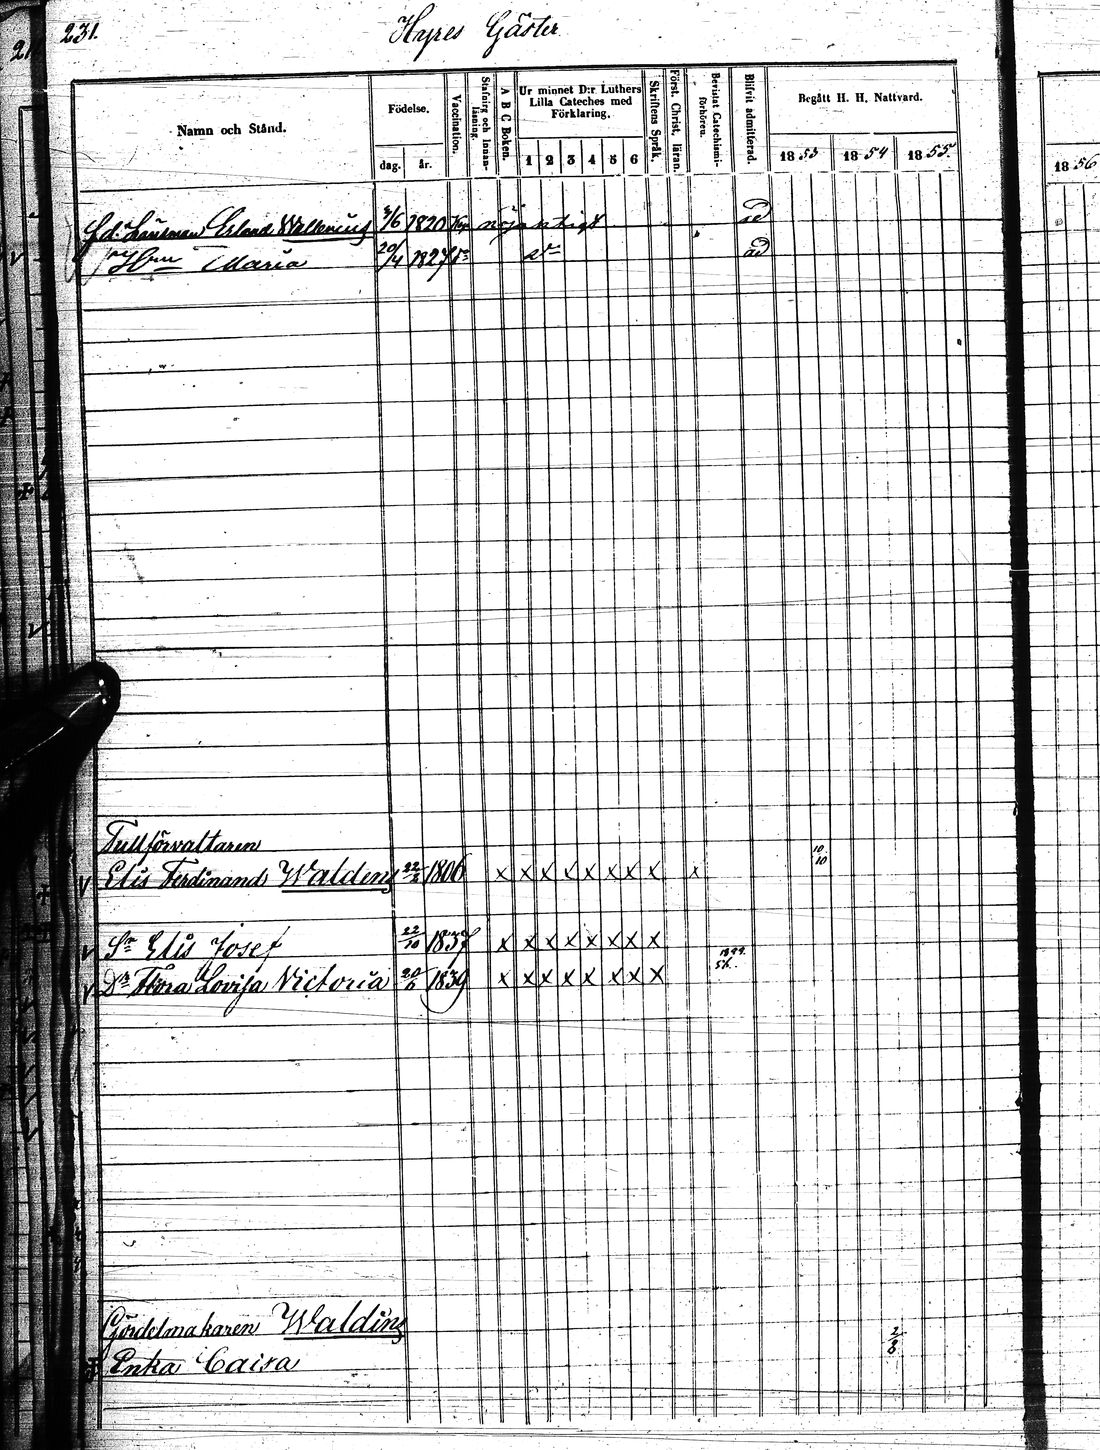 231.
Hyres Gäster
Namn och Stånd.
Födelse.
dag. år.
Vaccination.
Stafning och Innan-läsning.
A B C Boken.
Ur minnet D:r Luthers
Lilla Cateches med
Förklaring.
1 2 3 4 5 6
Skriftens Språk.
Först. Christ. läran.
Bevistat Catechismi-förhören.
Blifvit admitterad.
Begått H. H. Nattvard.
1853 1854 1855.
1856
f.d. Länsman Erland Wallenius 3/6 1820 Kop nöjaktigt ad
Maria 20/4 1827 ad
Tullförvaltaren
Elis Ferdinand Waldens 1806 x x x x x x x x x 10/10
Sn Elis Josef 22/10 1837 x x x x x x x x
Dr Flora Lovisa Victoria 20/6 1839 x x x x x x x x
Gördelmakaren Waldins
Enka Caisa 2/8